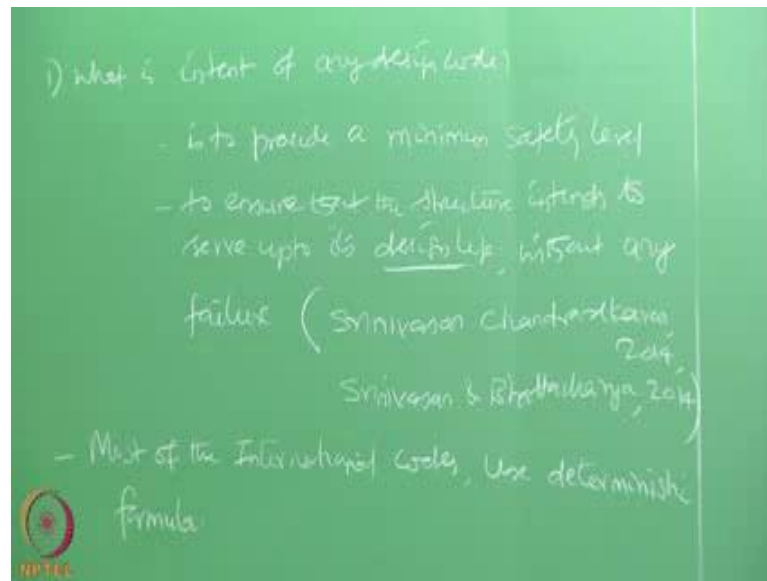 1) What is intent of any design code?
- is to provide a minimum safety level
- to ensure that the structure intends to
serve upto its design life, without any
failure (Srinivasan Chandrasekaran,
2014,
Srinivasan & Bhattacharya, 2014)
- Most of the International codes, use deterministic
formula
NPTEL